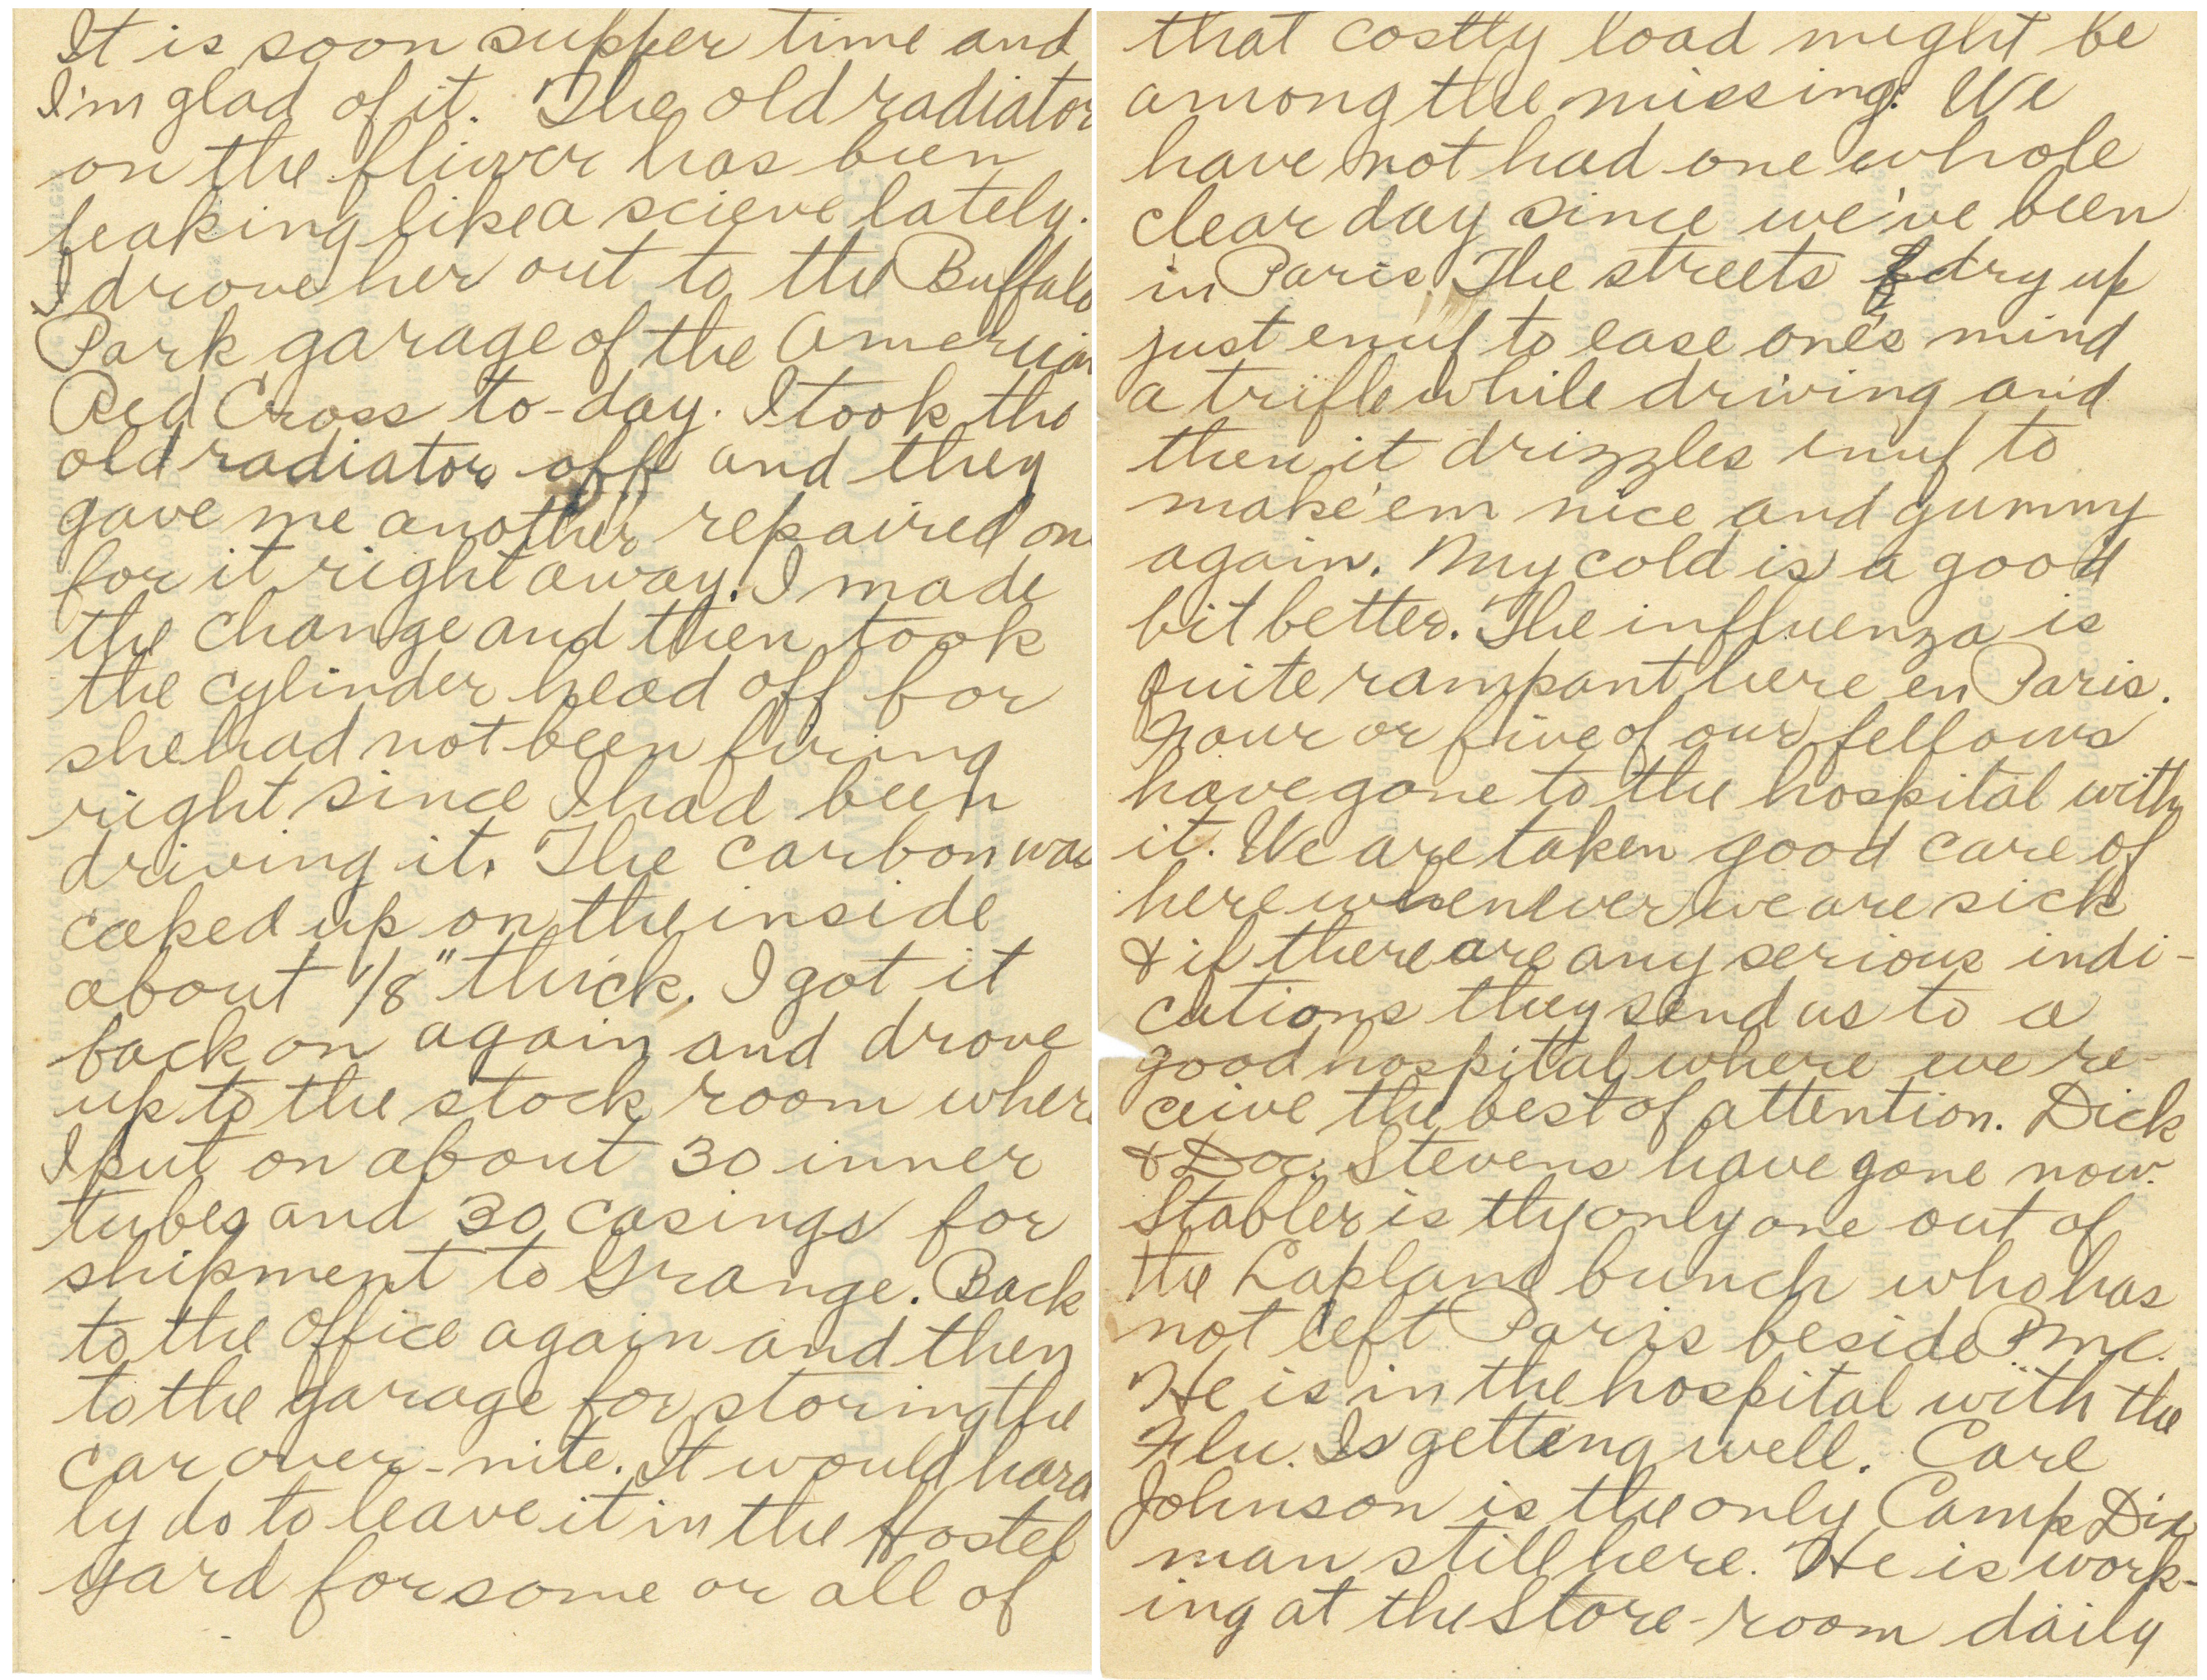 It is soon supper time and
I'm glad of it. The old radiator
on the flivver has been
leaking like a scieve lately.
I drove her out to the Buffalo
Park garage of the American
Red Cross to-day. I took the
old radiator off and they
gave me another repaired on
for it right away. I made
the change and then took
the cylinder head off for
she had not been firing
right since I had been
driving it. The carbon was
caked up on the inside
about 1/8" thick. I got it
back on again and drove
up to the stock room where
I put on about 30 inner
tubes and 30 casings for
shipment to Grange. Back
to the office again and then
to the garage for storing the
car over-nite. It would hard
ly do to leave it in the Hostel
yard for some or all of
that costly load might be
among the missing. We
have not had one whole
clear day since we've been
in Paris. The streets dry up
just enuf to ease one's mind
a trifle while driving and
then it drizzles enuf to
make 'em nice and gummy
again. My cold is a good
bit better. The influenza is
quite rampant here en Paris.
Four or five of our fellows
have gone to the hospital with
it. We are taken good care of
here whenever we are sick
& if there are any serious indi-
cations they send us to a
good hospital where we re-
ceive the best of attention. Dick
& Doc. Stevens have gone now.
Stabler is the only one out of
the Lapland bunch who has
not left Paris beside P.M.C.
He is in the hospital with the
Flu. Is getting well. Carl
Johnson is the only Camp Dix
man still here. He is work-
ing at the Store-room daily